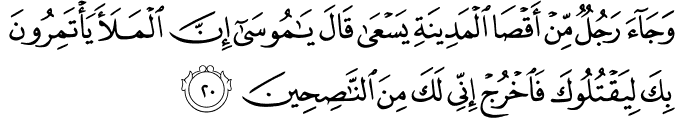 وَجَآءَ رَجُلٌ مِّنْ أَقْصَا ٱلْمَدِينَةِ يَسْعَىٰ قَالَ يَٰمُوسَىٰٓ إِنَّ ٱلْمَلَأَ يَأْتَمِرُونَ
بِكَ لِيَقْتُلُوكَ فَٱخْرُجْ إِنِّى لَكَ مِنَ ٱلنَّٰصِحِينَ ٢٠